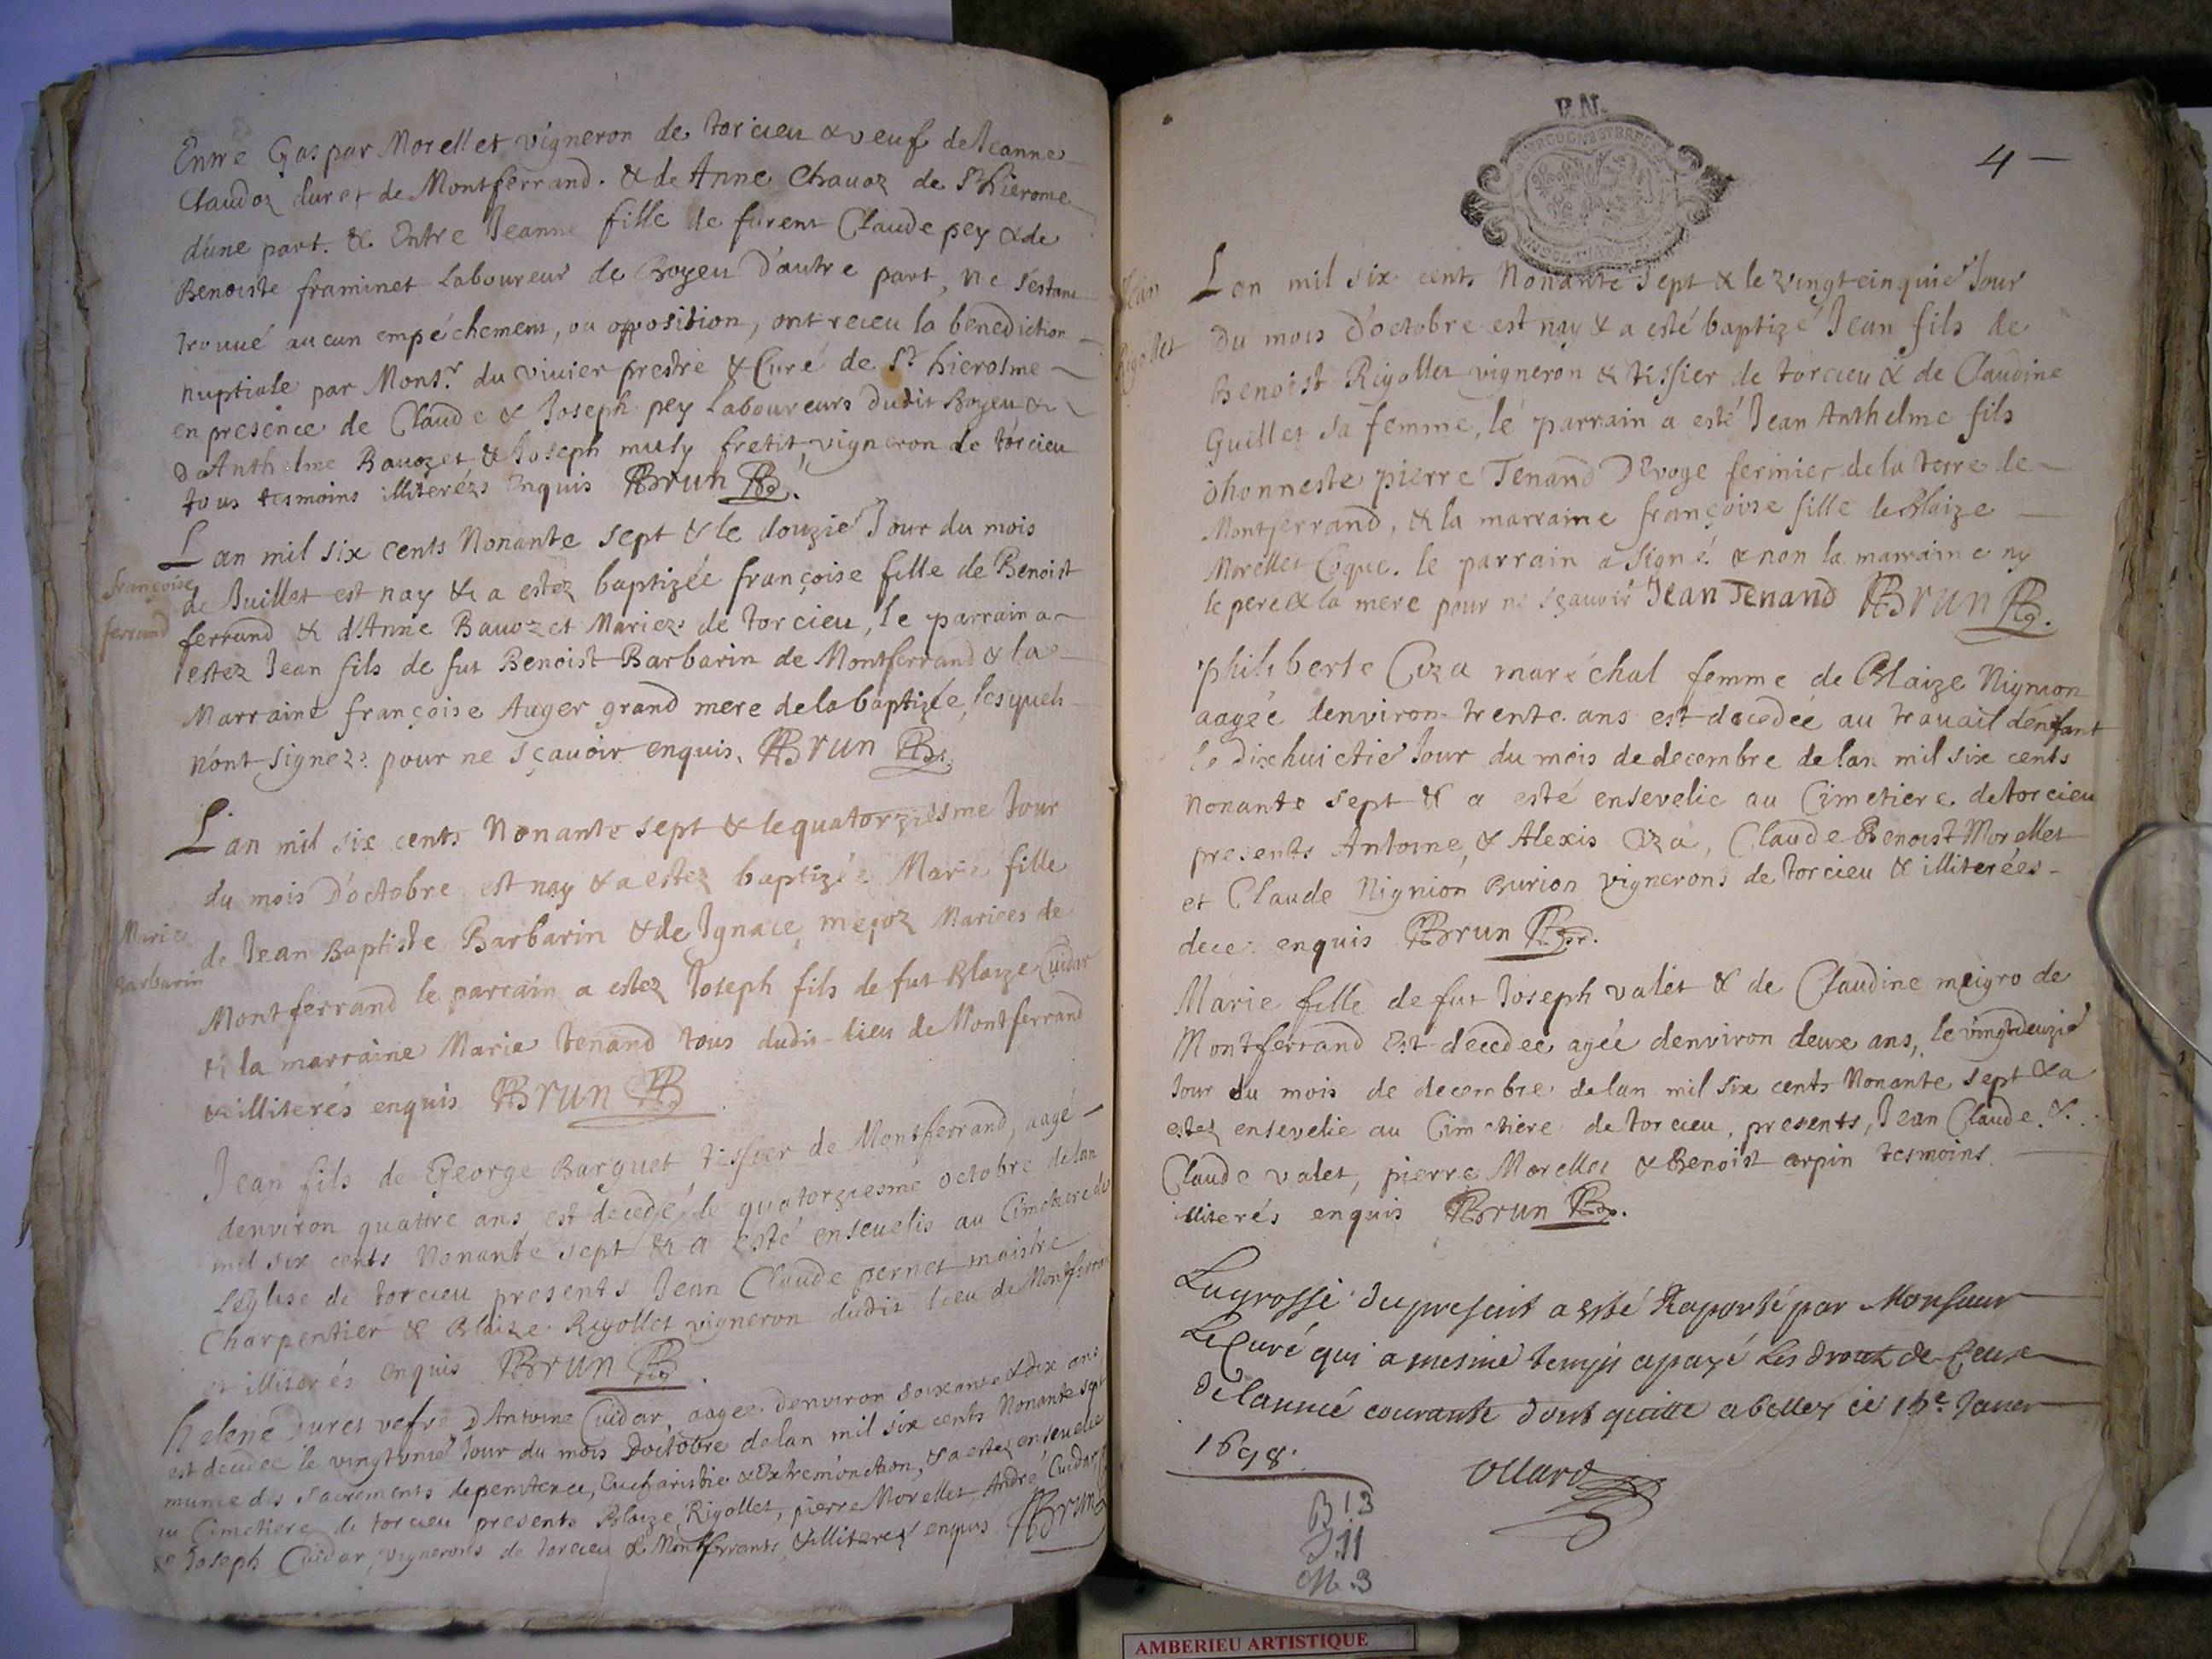 Entre Gaspar Morellet vigneron de torcieu & veuf de Jeanne
Claudoz duret de Montferrand. & de Anne Chavoz de St hierome
d'une part. & Entre Jeanne fille de furent Claude pey & de
Benoiste framinet Laboureur de Boyeu d'autre part, ne s'estant
trouvé aucun empéchement, ou opposition, ont receu la benediction
nuptiale par Monsr. du vivier prestre & Curé de St hierosme
en presence de Claude & Joseph pey Laboureurs dudit Boyeu &
d'Anthelme Bavozet & Joseph musy fretit, vigneron de torcieu
tous tesmoins illiterézs enquis BBrun
françoise
ferrand
Lan mil six cents Nonante sept & le douzie Jour du mois
de Juillet est nay & a estez baptizée françoise fille de Benoist
ferrand & d'Anne Bavozet Mariez de torcieu, le parrain a
estez Jean fils de fut Benoist Barbarin de Montferrand & la
Marraine françoise Auger grand mere de la baptizée, lesquels
n'ont signez pour ne sçavoir enquis. BBrun
Marie
Barbarin
L'an mil six cents Nonante sept & le quatorziesme Jour
du mois D'octobre est nay & a estez baptizée Marie fille
de Jean Baptiste Barbarin & de Ignace megoz Mariees de
Montferrand le parrain a estez Joseph fils de fut Blaize Cuidar
& la marraine Marie tenand tous dudit lieu de Montferrand
& illiterés enquis BBrun
Jean fils de George Barguet tissier de Montferrand, aagé
denviron quattre ans est decedé le quatorziesme octobre de lan
mil six cents Nonante sept & a esté ensevelis au Cimetiere de
LEglise de torcieu presents Jean Claude pernet maistre
Charpentier & Blaize Rigollet vigneron dudit lieu de Montferrand
et illiterés enquis BBrun
helene duret vefve D'Antoine Cuidar, aagee denviron soixante & dix ans
est decedee le vingtunie Jour du mois D'octobre de lan mil six cents Nonante sept
munie des sacrements de penitence, Eucharistie & Extremonction, & a estez ensevelie
au Cimetiere de torcieu presents Blaize Rigollet, pierre Morellet, André Cuidar,
& Joseph Cuidar, vignerons de torcieu & Montferrants, & illiterez enquis BBrun
B.N.
4
Jean
Rigollet
Lan mil six cents Nonante sept & le vingtcinquie Jour
du mois d'octobre est nay & a esté baptizé Jean fils de
Benoist Rigollet vigneron & tissier de torcieu & de Claudine
Guillet sa femme, le parrain a esté Jean Anthelme fils
dhonneste pierre Tenand DEvoge fermier de la terre de
Montferrand, & la marraine françoise fille de Blaize
Morellet Coque. le parrain a signé & non la marraine ny
le pere & la mere pour ne sçavoir Jean Tenand BBrun
philiberte Coza maréchal femme de Blaize Nignion
aagée denviron trente ans est decedée au travail d'enfant
le dixhuictie Jour du mois de decembre de lan mil six cents
nonante sept & a esté ensevelie au Cimetiere de torcieu
presents Antoine, & Alexis Coza, Claude Benoist Morellet
et Claude Nignion Burion vignerons de torcieu & illiterées
dece enquis BBrun
Marie fille de fut Joseph valet & de Claudine meigro de
Montferrand Est decedee agée denviron deux ans, le vingtdeuzie
Jour du mois de decembre de lan mil six cents Nonante sept & a
estez ensevelie au Cimetiere de torcieu, presents, Jean Claude, &
Claude valet, pierre Morellet & Benoist arpin tesmoins
illiterés enquis BBrun
La grosse du present a esté Raporté par Monsieur
Le Curé qui a mesme temps a payé Les droits de Ceux
de lannee courante dont quitte a belley ce 16e Janer
1698.
Ollard
B 13
D. 11
M. 3
AMBERIEU ARTISTIQUE